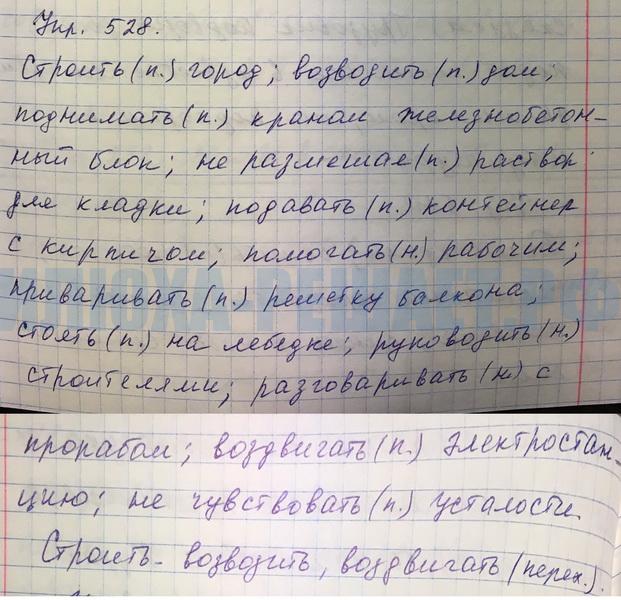 Упр. 528.
Строить (п.) город; возводить (п.) дом;
поднимать (п.) краном железнобетон-
ный блок; не размешае (п.) раствор
для кладки; подавать (п.) контейнер
с кирпичом; помогать (н.) рабочим;
приваривать (п.) решетку балкона;
стоять (п.) на лебедке; руководить (н.)
строителями; разговаривать (н) с
прорабом; воздвигать (п.) электростан-
цию; не чувствовать (п.) усталости
Строить - возводить, воздвигать (перех.).